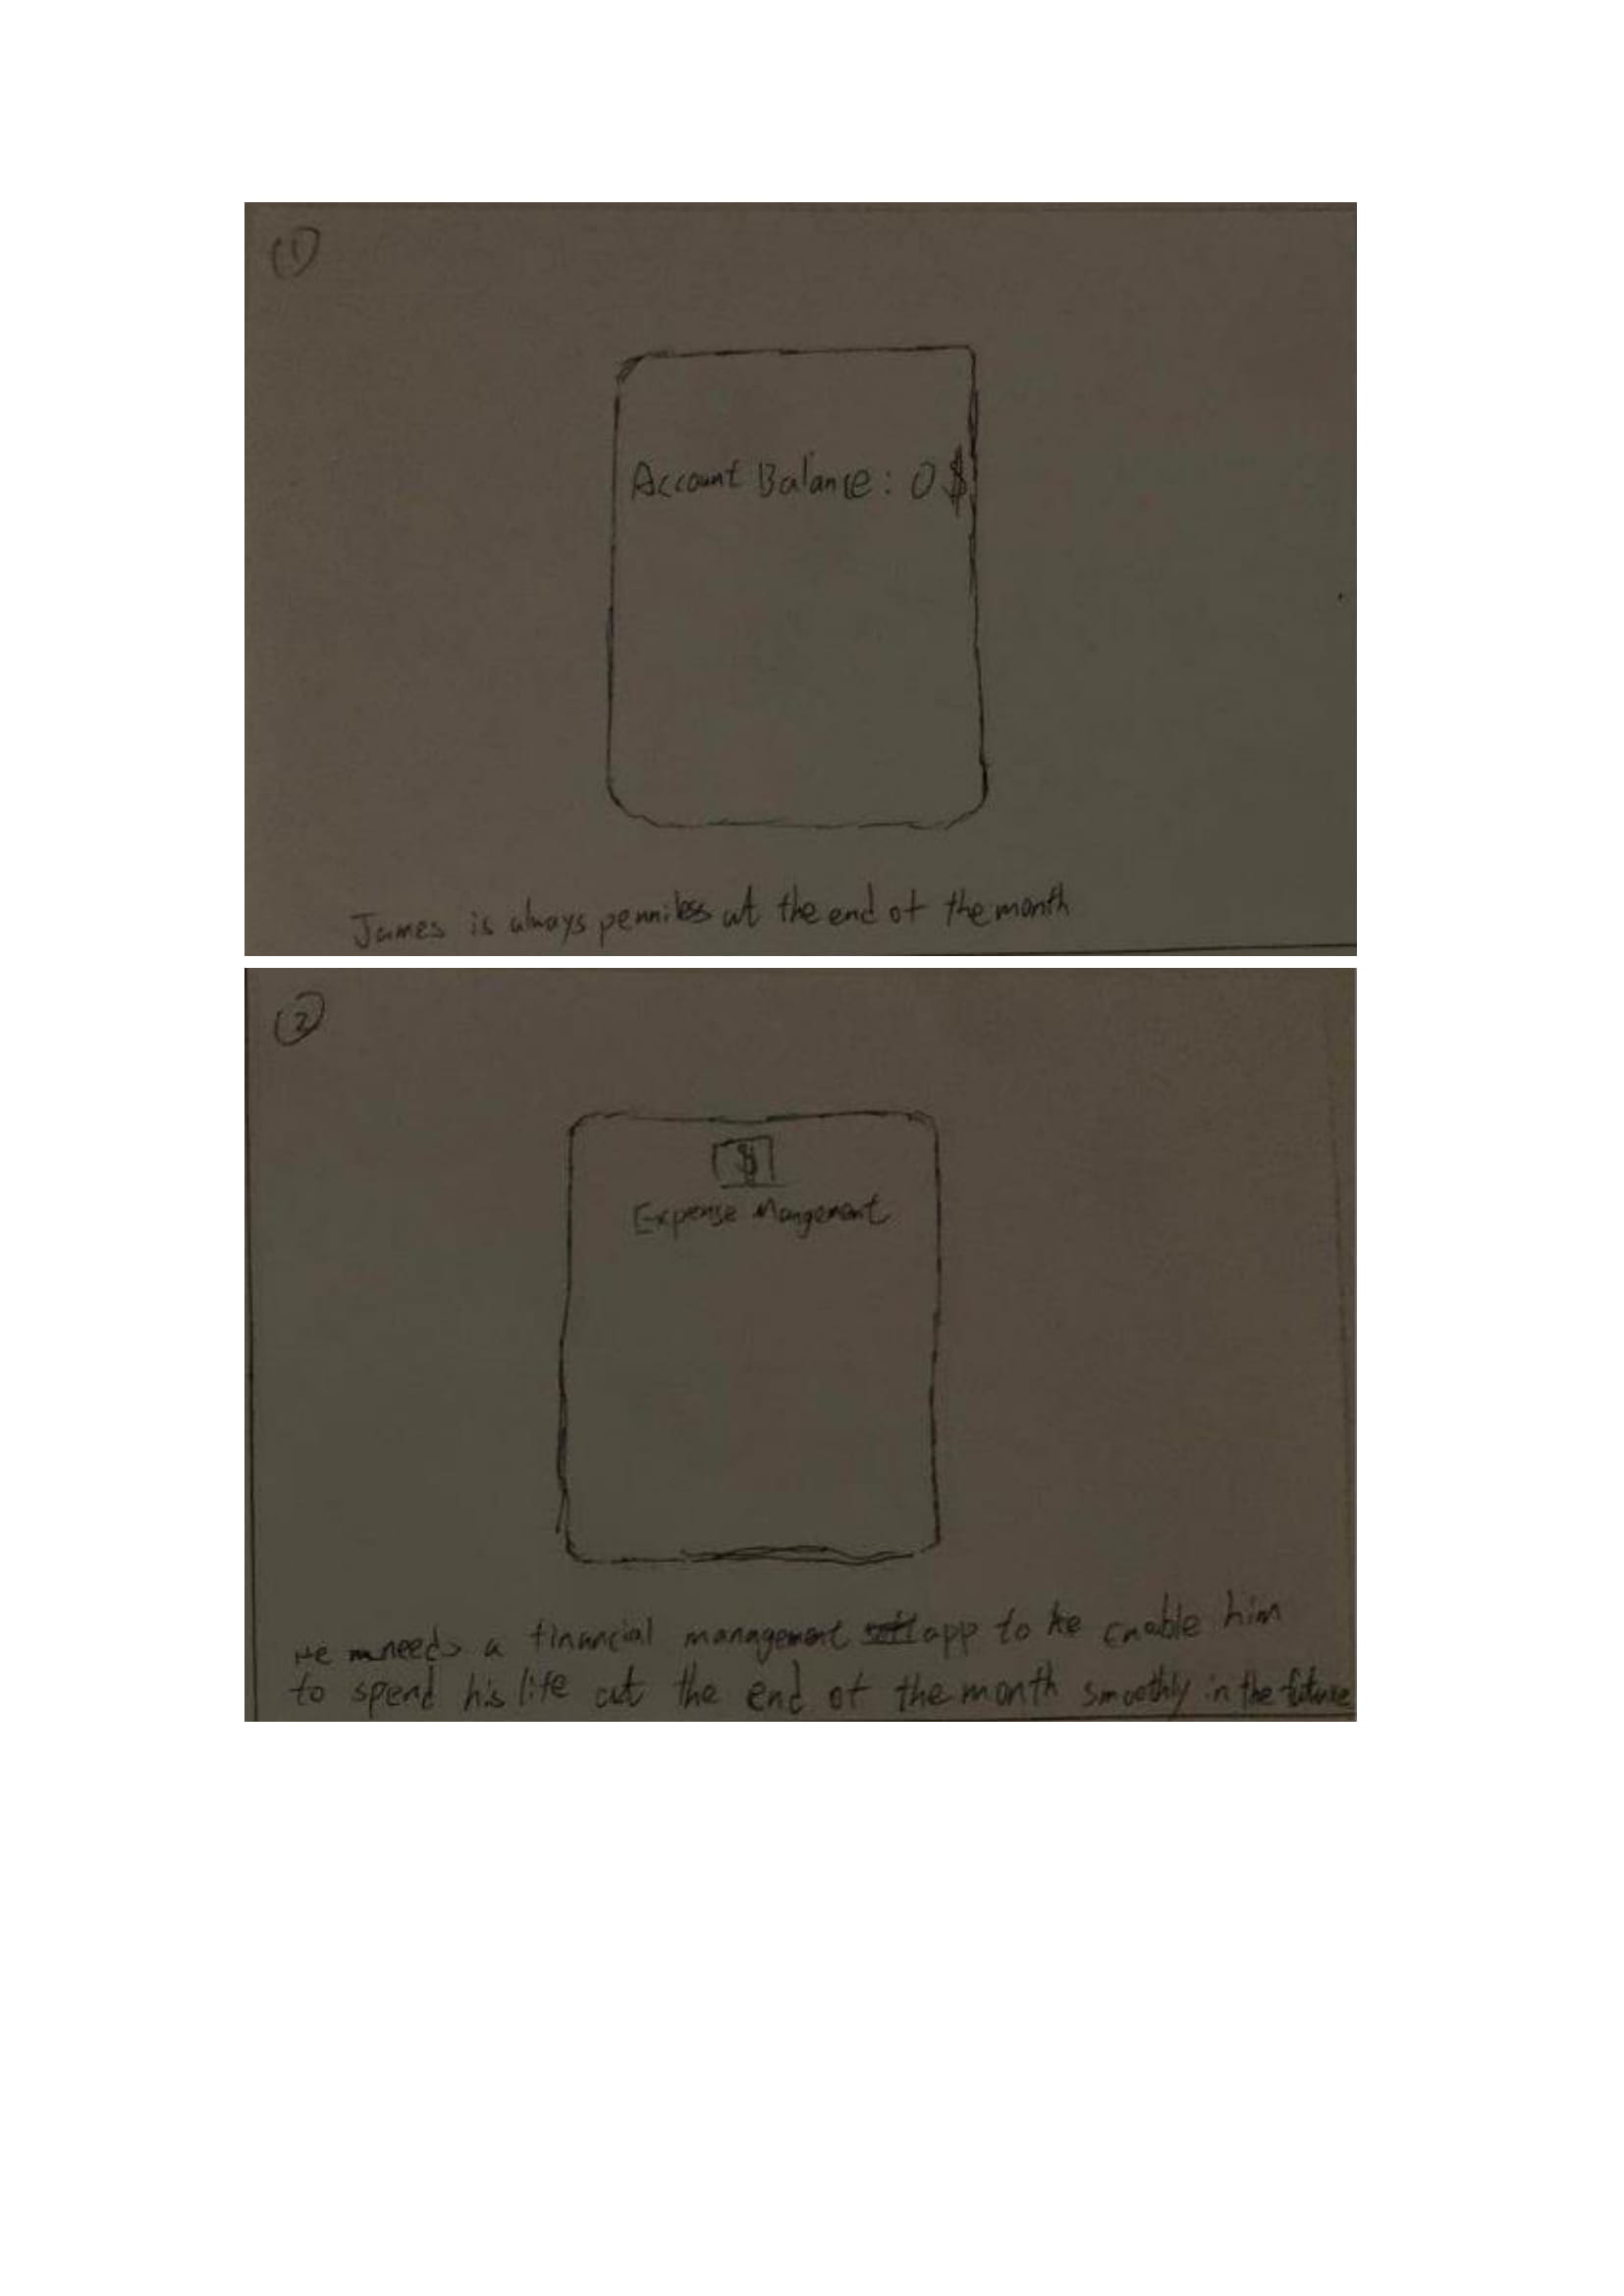 1
Account Balance: 0$
James is always penniless at the end of the month
2
$
Expense Mangement
He needs a financial management app to he enable him
to spend his life at the end of the month smoothly in the future